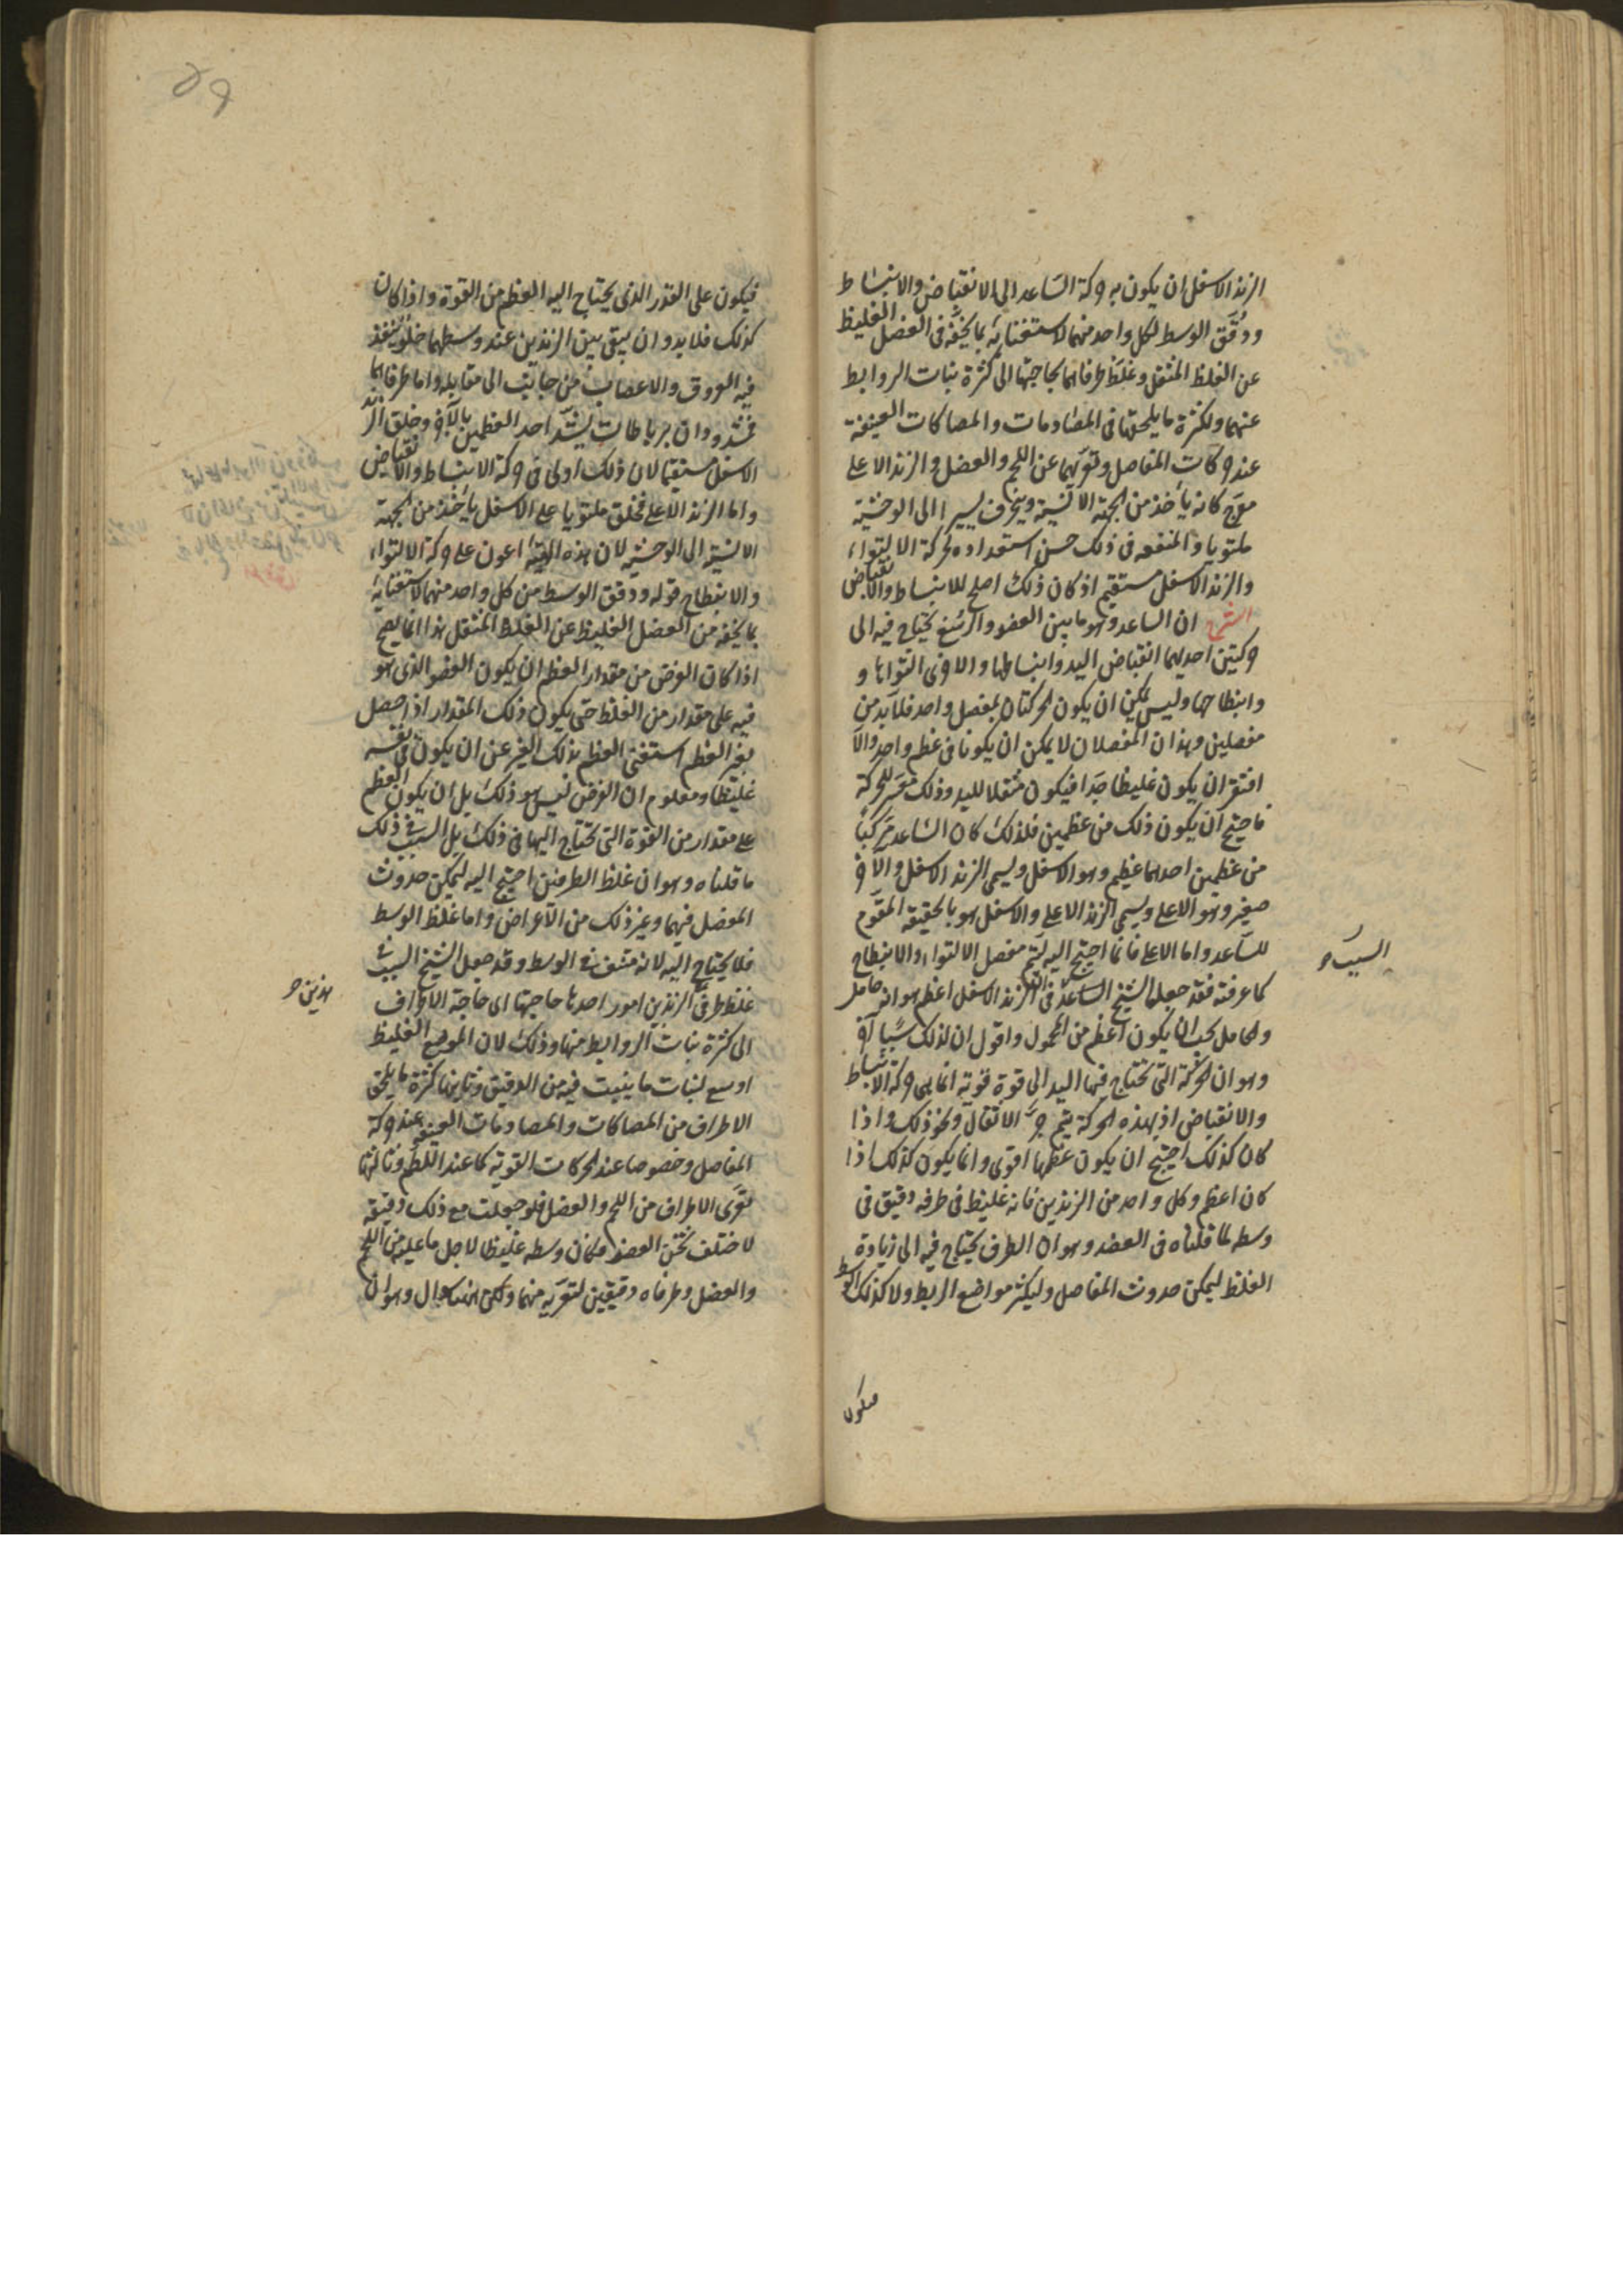 الزند الاسفل ان يكون به حركة الساعد الى الانقباض والانبساط
ودُقِّق الوسط لكل واحد منهما لاستغنائه بما يخفه فى العضل الغليظ
عن الغلظ المثقل وغلظ طرفاهما لحاجتهما الى كثرة نبات الروابط
عنهما ولكثرة ما يلحقها فى المصادمات والمصاكات العنيفة
عند حركات المفاصل وتعريهما عن اللحم والعضل والزند الاعلى
معوج كانه يأخذ من الجهة الانسية وينحرف يسيرا الى الوحشية
ملتويا والمنفعه فى ذلك حسن استعداده لحركة الالتواء
والزند الاسفل مستقيم اذ كان ذلك اصلح للانبساط والانقباض
الشرح ان الساعد وهو ما بين العضد والرسغ يحتاج فيه الى
حركتين احديهما انقباض اليد وانبساطها والاخرى التواءها و
وانبطاحها وليس يمكن ان يكون الحركتان بمفصل واحد فلا بد من
مفصلين وهذان المفصلان لا يمكن ان يكونا فى عظم واحد والا
افتقر ان يكون غليظا جدا فيكون مثقلا لليد وذلك معسر للحركة
فاحتيج ان يكون ذلك من عظمين فلذلك كان الساعد مركبا
من عظمين احدهما عظيم وهو الاسفل ويسمى الزند الاسفل والآخر
صغير وهو الاعلى ويسمى الزند الاعلى والاسفل هو بالحقيقة المقوم
للساعد واما الاعلى فانما احتيج اليه ليتم مفصل الالتواء والانبطاح
كما عرفته فقد جعل الشيخ الساعد فى الزند الاسفل اعظم هو انه حامل
والحامل يجب ان يكون اعظم من المحمول واقول ان لذلك سببا آخر
وهو ان الحركة التى تحتاج فيها اليد الى قوة قوية انما هى حركة الانبساط
والانقباض اذ بهذه الحركة يتم جر الاثقال ونحو ذلك واذا
كان كذلك احتيج ان يكون عظمها اقوى وانما يكون كذلك اذا
كان اعظم وكل واحد من الزندين فانه غليظ فى طرفه دقيق فى
وسطه لما قلناه فى العضد وهو ان الطرف يحتاج فيه الى زيادة
الغلظ ليمكن حدوث المفاصل وليكثر مواضع الربط ولا كذلك الوسط
السبب
فيكون
فيكون على القدر الذى يحتاج اليه العظم من القوة واذا كان
كذلك فلا بد وان يبقى بين الزندين عند وسطهما خلو ينفذ
فيه العروق والاعصاب من جانب الى مقابله واما طرفاهما
فمشدودان برباطات يشد احد العظمين بالآخر وخلق الزند
الاسفل مستقيما لان ذلك اولى فى حركة الانبساط والانقباض
واما الزند الاعلى فخلق ملتويا على الاسفل يأخذ من الجهة
الانسية الى الوحشية لان هذه الهيئة اعون على حركة الالتواء
والانبطاح قوله ودقق الوسط من كل واحد منهما لاستغنائه
بما يخفه من العضل الغليظ عن الغلظ المثقل هذا انما يصح
اذا كان الغرض من مقدار العظم ان يكون العضو الذى هو
فيه على مقدار من الغلظ حتى يكون ذلك المقدار اذا حصل
بغير العظم استغنى العظم بذلك الغير عن ان يكون فى نفسه
غليظا ومعلوم ان الغرض ليس هو ذلك بل ان يكون العظم
على مقدار من القوة التى تحتاج اليها فى ذلك بل السبب فى ذلك
ما قلناه وهو ان غلظ الطرفين احتيج اليه ليمكن حدوث
المفصل فيهما وغير ذلك من الاعراض واما غلظ الوسط
فلا يحتاج اليه لانه مثقل فى الوسط وقد جعل الشيخ السبب فى
غلظ طرفى الزندين امور احدها حاجتها اى حاجة الاطراف
الى كثرة نبات الروابط منها وذلك لان الموضع الغليظ
اوسع لنبات ما ينبت فيه من الدقيق وثانيها كثرة ما يلحق
الاطراف من المصاكات والمصادمات العنيفة عند حركة
المفاصل وخصوصا عند الحركات القوية كما عند اللطم وثالثها
تعرى الاطراف من اللحم والعضل فلو جعلت مع ذلك دقيقة
لاختلف ثخن العضو فكان وسطه غليظا لاجل ما عليه من اللحم
والعضل وطرفاه دقيقين لتعريه منهما ولكن هناك سؤال وهو ان
هذين